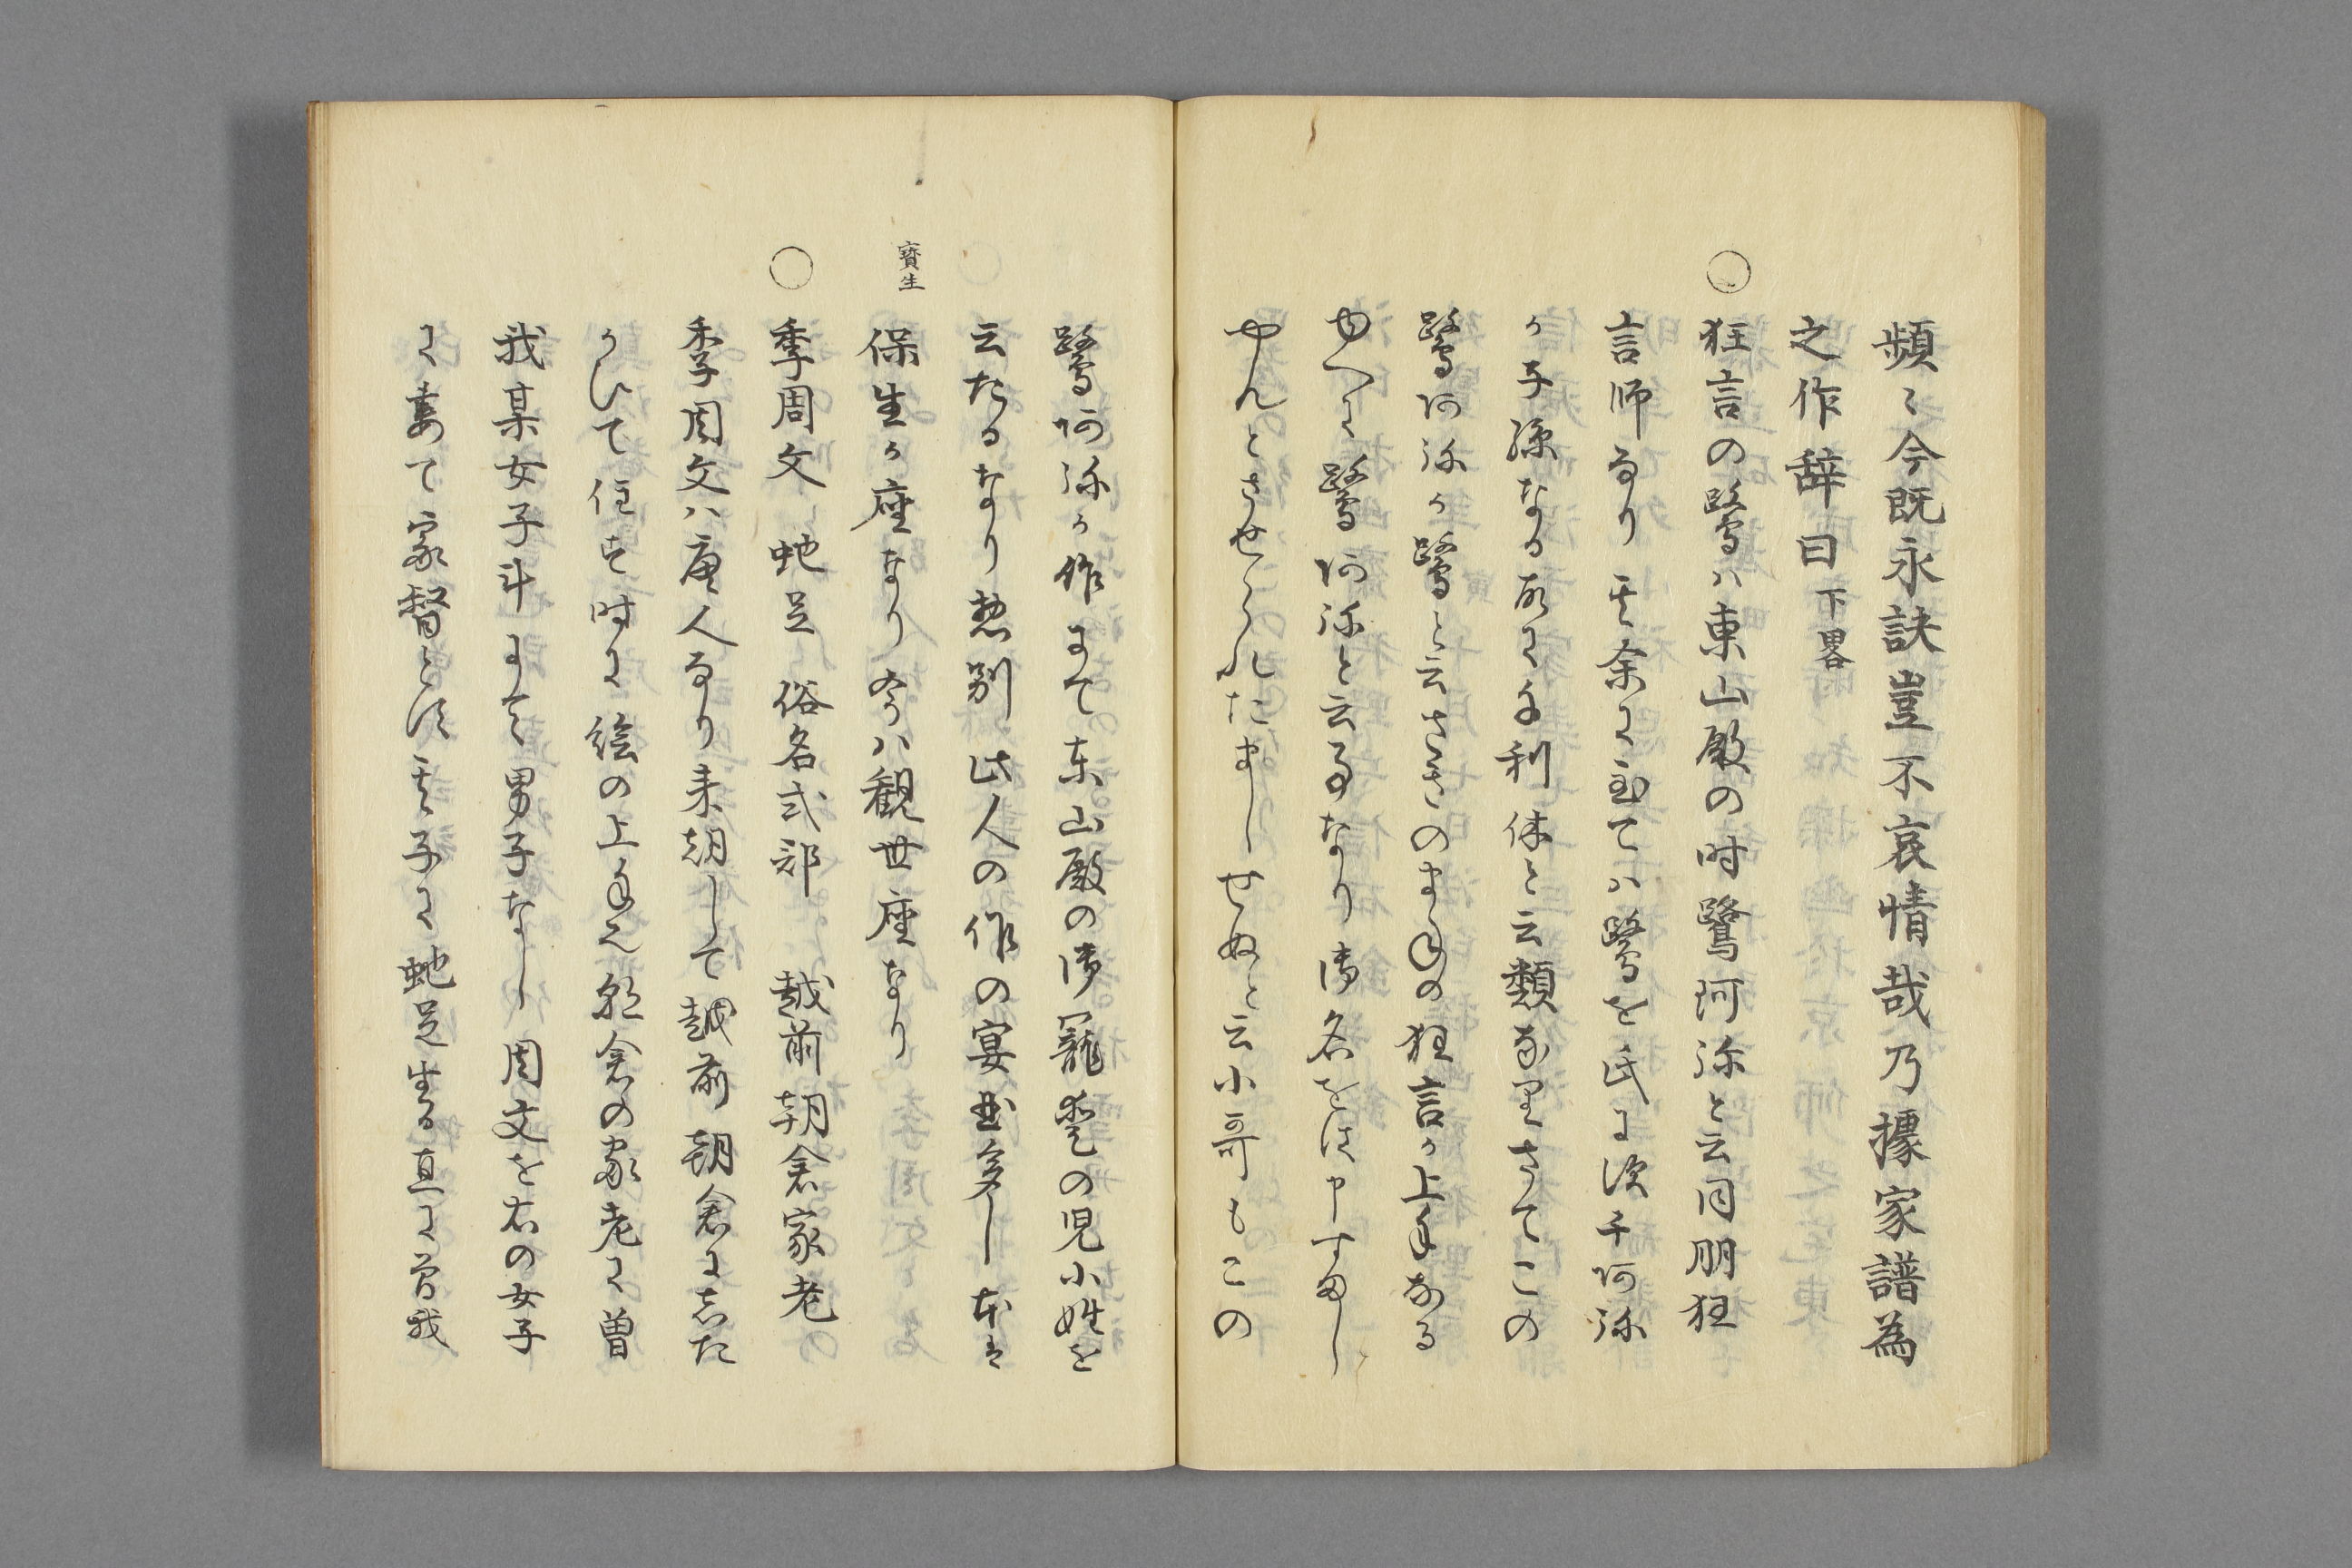 頻〻今既永訣豈不哀情哉乃據家譜為
之作辞曰下畧
○狂言の鷺ハ東山殿の時鷺阿弥と云同朋狂
言師なり其余に至てハ鷺を氏に須千阿弥
か子孫なる故に千利休と云類なり里さてこの
鷺阿弥か鷺と云さきのまねの狂言か上手なる
ゆへに鷺阿弥と云事なり御名をは申すましし
やんとさせられたましせぬと云小哥もこの
鷺阿弥か作にて東山殿の御寵愛の児小姓を
云たるなり惣別此人の作の宴曲多し本は
寳生
保生か座なり今ハ観世座なり
○季周文 蛇足 俗名式部 越前朝倉家老
季周文ハ唐人なり来朝して越前朝倉にした
かひて住す時に絵の上手也朝倉の家老に曽
我某女子斗にて男子なし周文を右の女子
に妻て家督とす其子に蛇足生る直に曽我